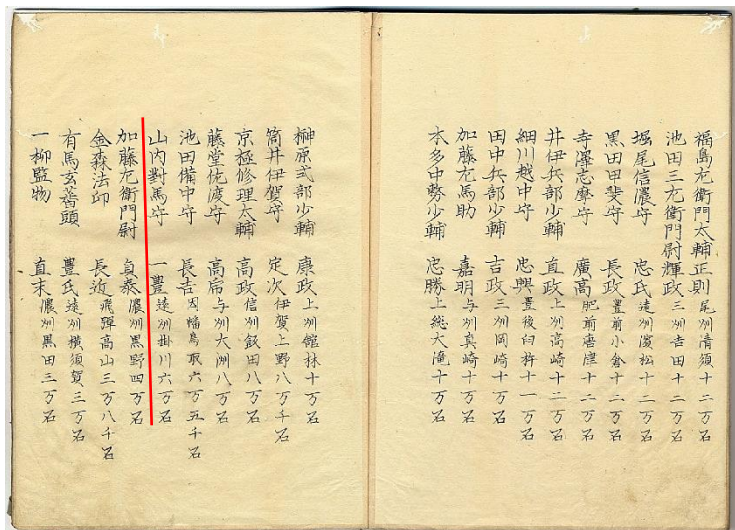 福島左衛門太輔正則 尾州清須十二万石
池田三左衛門尉輝政 三州吉田十二万石
堀尾信濃守 忠氏 遠州濱松十二万石
黒田甲斐守 長政 豊前小倉十二万石
寺澤志摩守 廣高 肥前唐津十二万石
井伊兵部少輔 直政 上州高崎十二万石
細川越中守 忠興 豊後臼杵十一万石
田中兵部少輔 吉政 三州岡崎十万石
加藤左馬助 嘉明 与州真崎十万石
本多中務少輔 忠勝 上総大滝十万石
榊原式部少輔 康政 上州館林十万石
筒井伊賀守 定次 伊賀上野八万千石
京極修理太輔 高政 信州飯田八万石
藤堂佐渡守 高虎 与州大洲八万石
池田備中守 長吉 因幡鳥取六万五千石
山内對馬守 一豊 遠州掛川六万石
加藤左衛門尉 貞泰 濃州黒野四万石
金森法印 長近 飛騨高山三万八千石
有馬玄蕃頭 豊氏 遠州横須賀三万石
一柳監物 直末 濃州黒田三万石